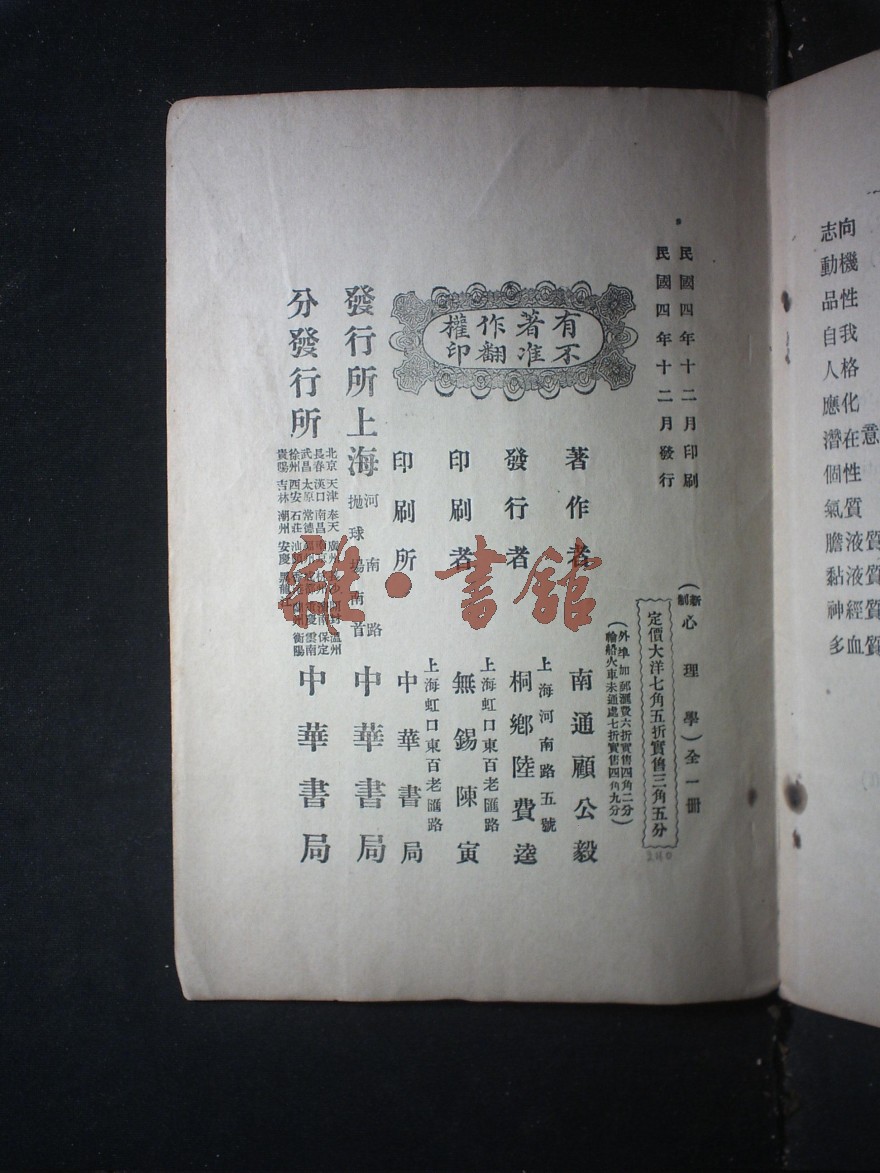 志向
動機
品性
自我
人格
應化
潛在意
個性
氣質
膽液質
黏液質
神經質
多血質
民國四年十二月印刷
民國四年十二月發行
(新制心理學)全一冊
定價大洋七角五折實售三角五分
(外埠加郵滙費六折實售四角二分)
(輪船火車未通處七折實售四角九分)
有著作權
不准翻印
著作者 南通顧公毅
發行者 上海河南路五號
桐鄉陸費逵
印刷者 上海虹口東百老匯路
無錫陳寅
印刷所 上海虹口東百老匯路
中華書局
發行所 上海河南路拋球場南首 中華書局
分發行所 中華書局
北京 天津 奉天 廣州 溫州
長春 漢口 南昌 保定
武昌 太原 常德 雲南
徐州 西安 石莊 衡陽
貴陽 吉林 潮州 安慶 黑龍江
雜·書館